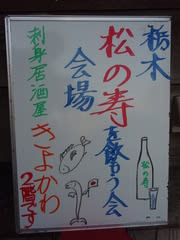 栃木
松の寿を飲もう会
会場
刺身居酒屋
きよかわ
2階です
松の寿